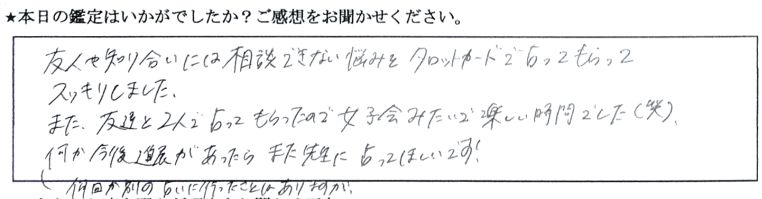 ★本日の鑑定はいかがでしたか？ご感想をお聞かせください。
友人や知り合いには相談できない悩みをタロットカードで占ってもらって
スッキリしました。
また、友達と2人で占ってもらったので女子会みたいで楽しい時間でした(笑)。
何か今後進展があったらまた先生に占ってほしいです!
何回か別の占いに行ったことはありますが、